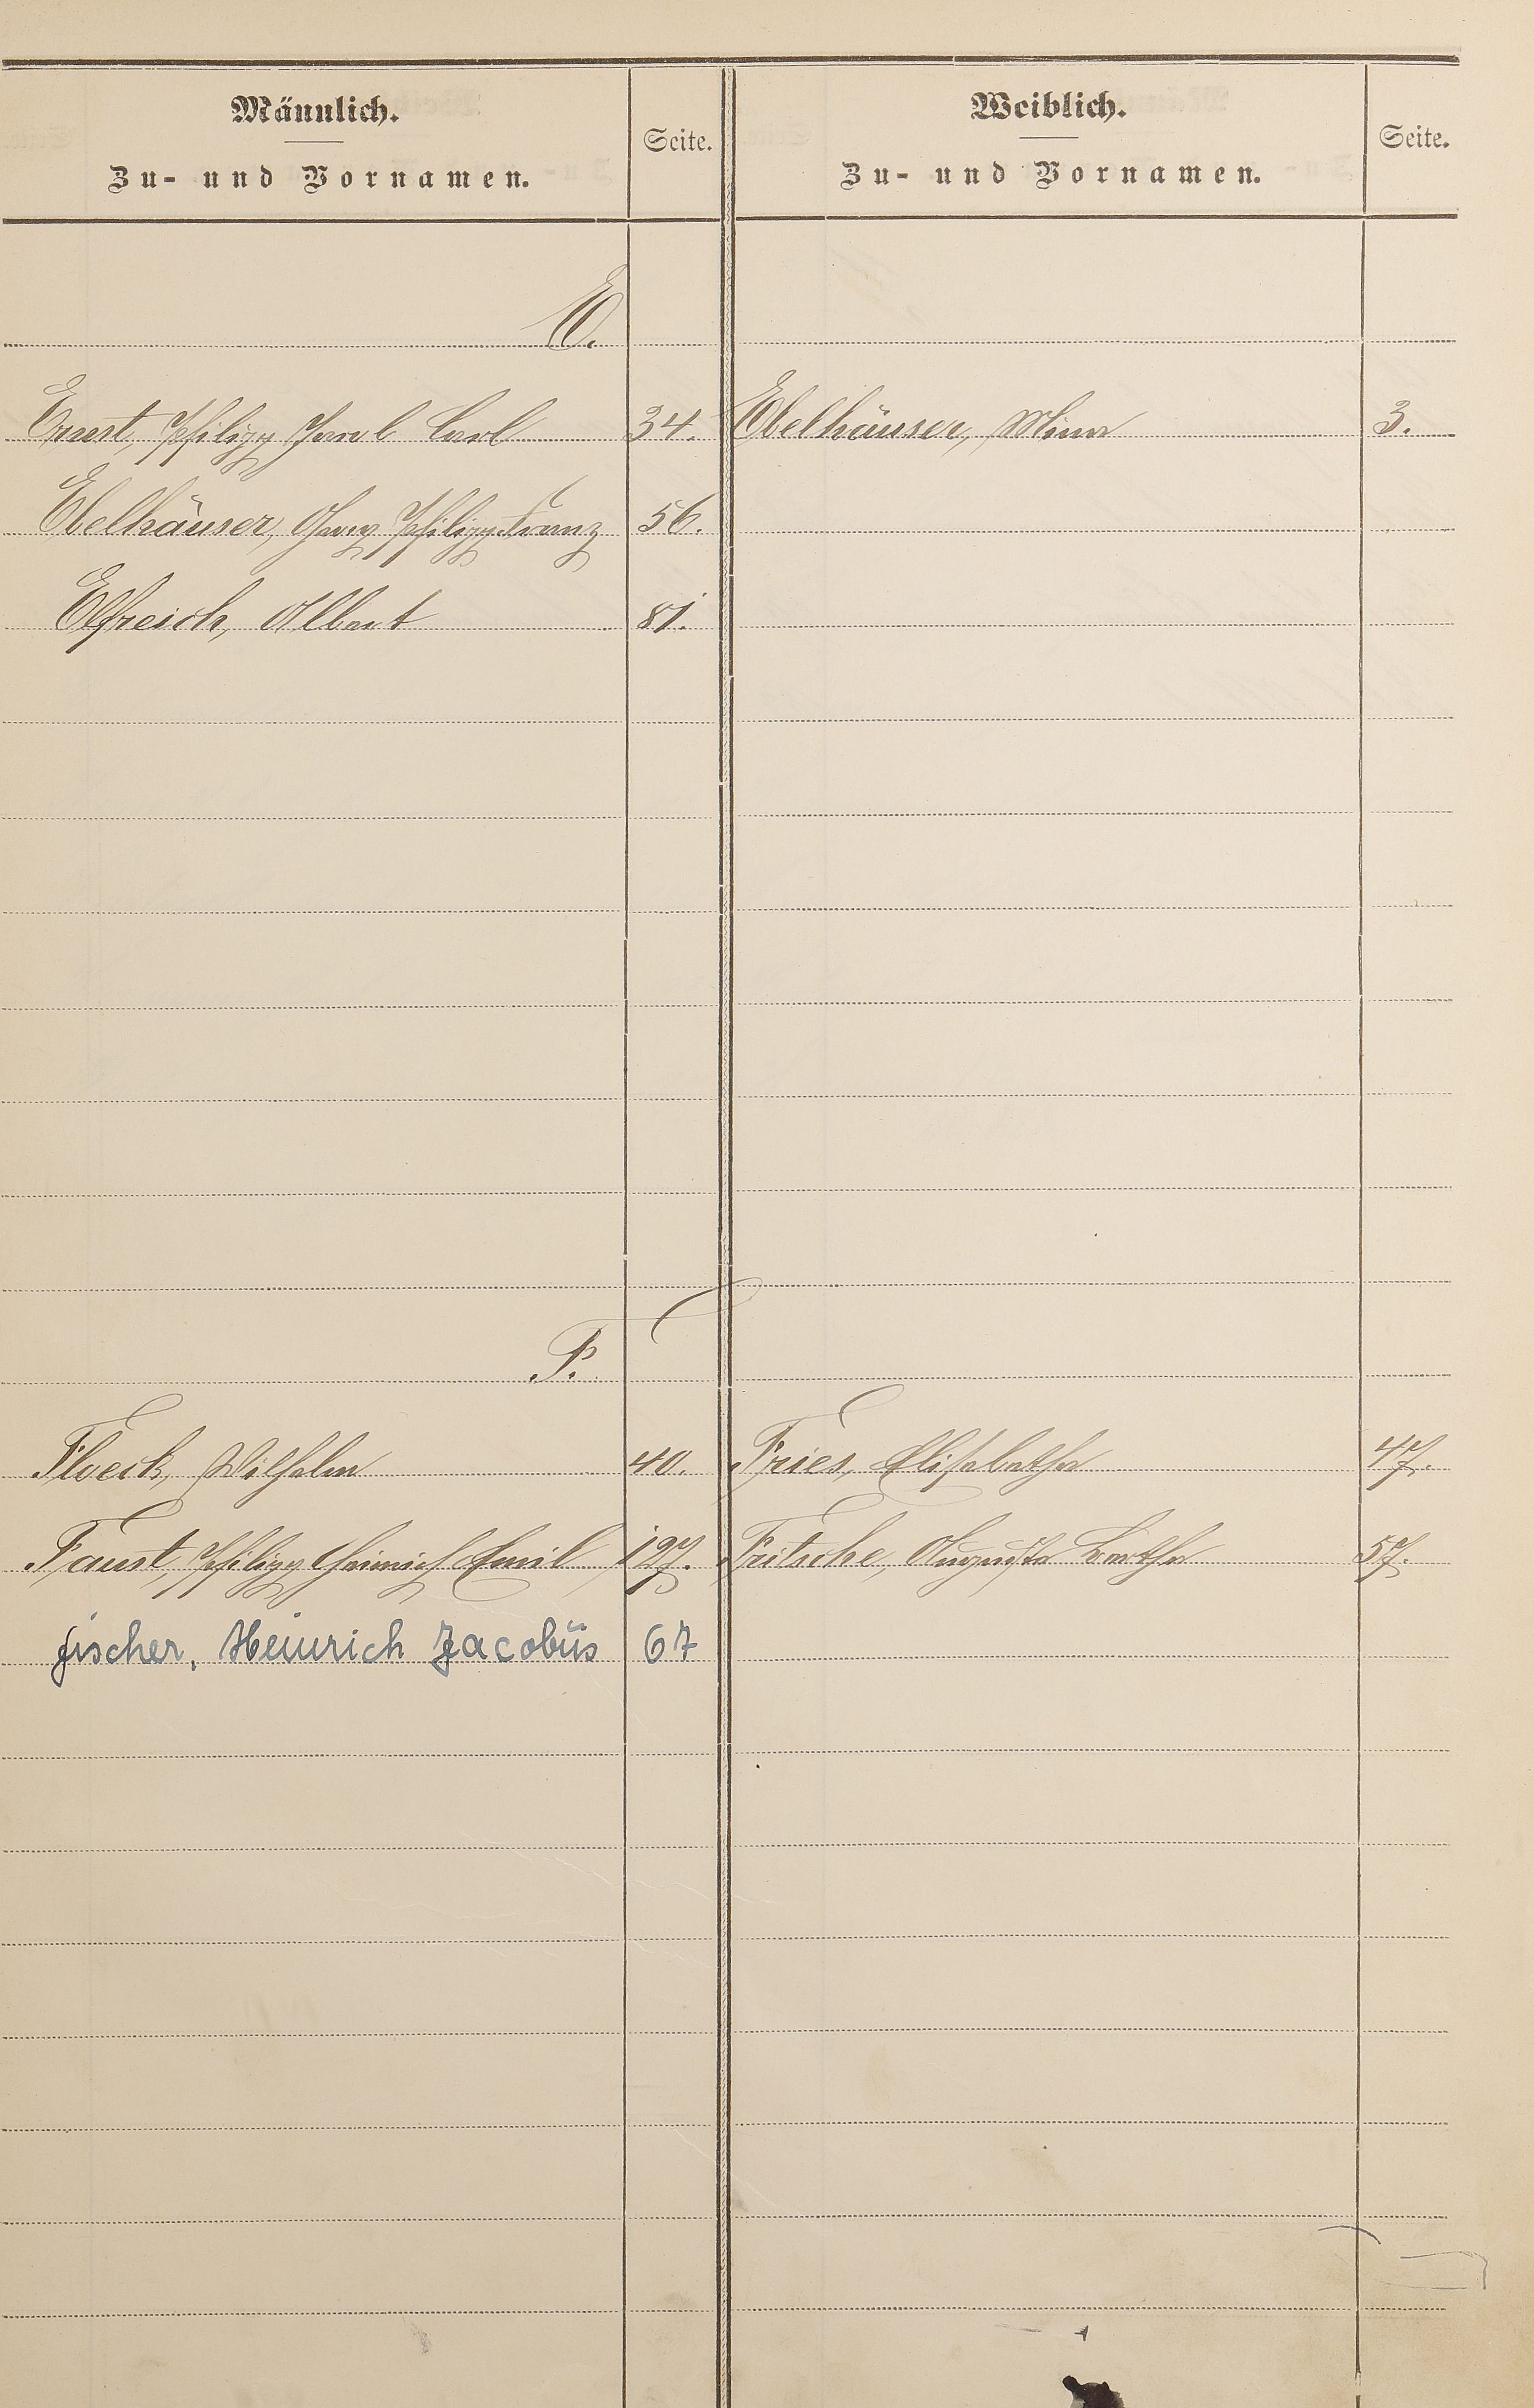 Männlich.
Zu- und Vornamen.
Seite.
Weiblich.
Zu- und Vornamen.
Seite.
E.
Ernst, Philipp Jacob Carl 34. Ebelhäuser, Mina 3.
Ebelhäuser, Georg Philipp Franz 56.
Elfreich, Albert 81.
F.
Floeck, Wilhelm 40. Fries, Elisabetha 47.
Faust, Philipp Heinrich Emil 127. Fritsche, Augusta Bertha 57.
Fischer, Heinrich Jacobus 67